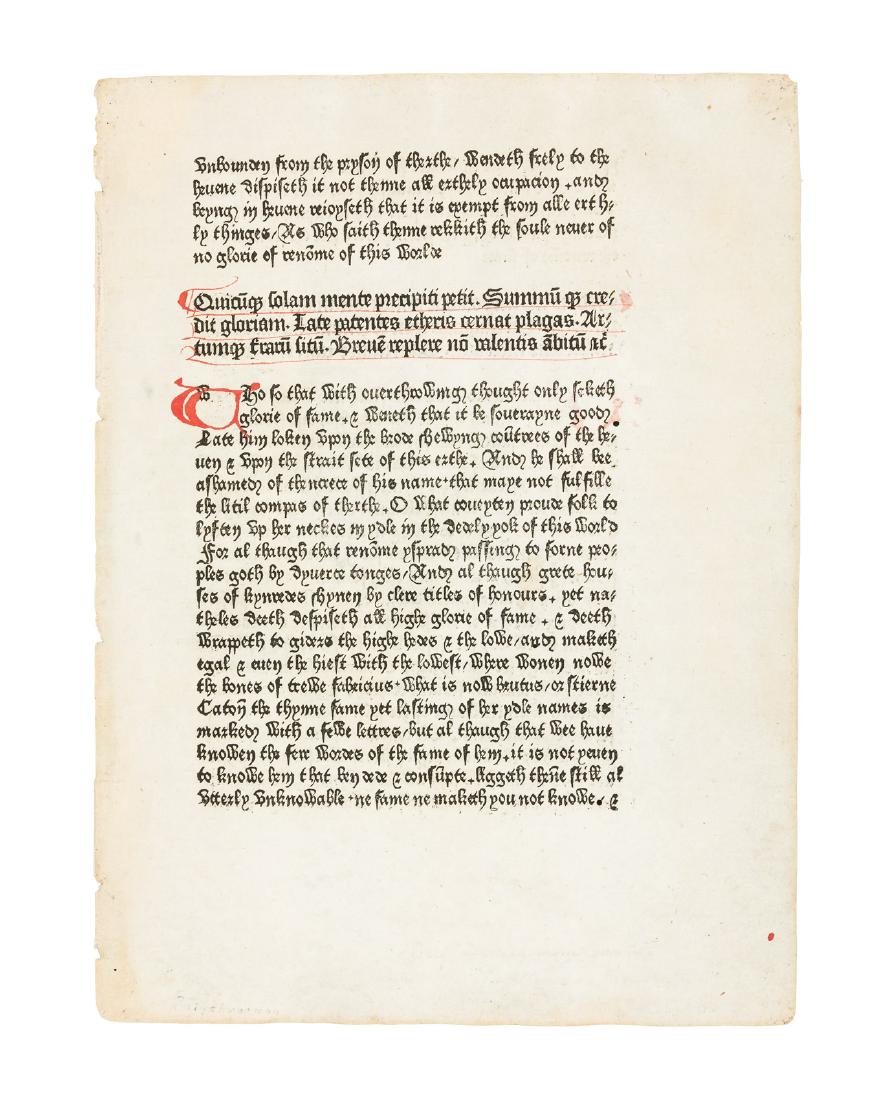 Vnbounden from the pryson of therthe/ Wendeth frely to the
heuene dispiseth it not thenne all erthely ocupacion ⸱ and
beyng in heuene reioyseth that it is exempt from alle erth-
ly thinges/ As Who saith thenne rekkith the soule neuer of
no glorie of renōme of this Worlde
Quicūqꝫ solam mente precipiti petit. Summū qꝫ cre-
dit gloriam. Late patentes etheris cernat plagas. Ar-
tumqꝫ t̄rarū sitū. Breuē replere nō valentis ābitū ⁊c̄
W Ho so that With ouerthroWing thought only seketh
glorie of fame ⸱ & Weneth that it be souerayne good
Late him loken vpon the brode sheWyng coūtrees of the he-
uen & vpon the strait sete of this erthe ⸱ And he shall bee
ashamed of thencrece of his name ⸱ that maye not fulfille
the litil compas of therthe ⸱ O What coueyten proude folk to
lyften vp her neckes in ydle in the dedely yok of this World
For al though that renōme ysprad passing to ferne peo-
ples goth by dyuerce tonges/ And al though grete hou-
ses of kynredes shynen by clere titles of honours ⸱ yet na-
theles deeth despiseth all highe glorie of fame ⸱ & deeth
Wrappeth to giders the highe hedes & the loWe/ and maketh
egal & euen the hiest With the loWest/ Where Wonen noWe
the bones of treWe fabricius ⸱ What is noW brutus/ or stierne
Caton the thynne fame yet lasting of her ydle names is
marked With a feWe lettres/ but al though that Wee haue
knoWen the feir Wordes of the fame of hem ⸱ it is not yeuen
to knoWe hem that ben dede & consūpte ⸱ Liggeth thēne still al
Vtterly VnknoWable ⸱ ne fame ne maketh you not knoWe ⸱ &